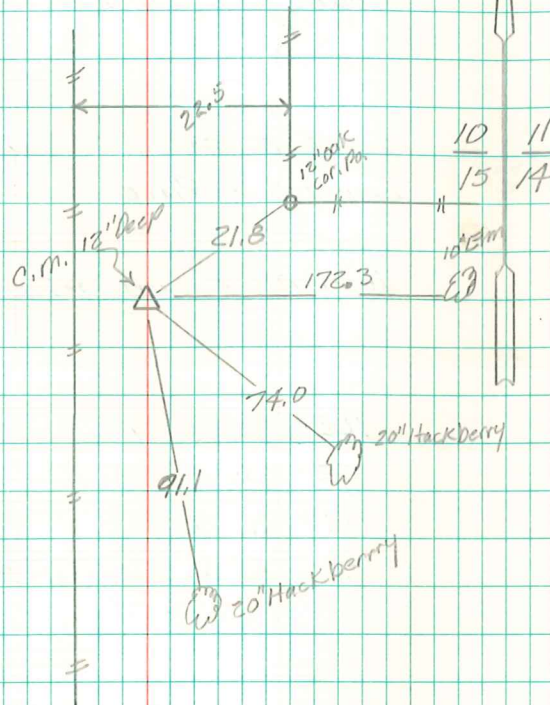 22.5
12" oak
cor. po.
10 11
15 14
12" Deep
C.M.
21.8
10" Elm
172.3
74.0
20" Hackberry
91.1
20" Hackberrry